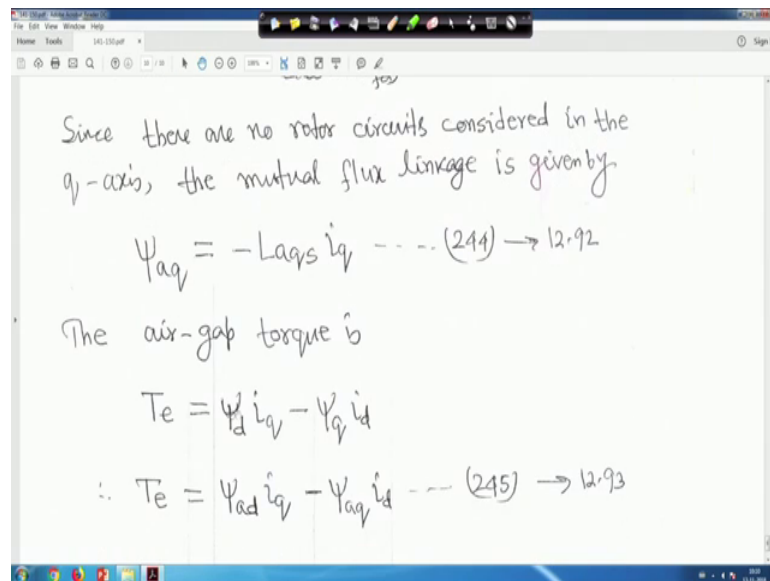 141-150.pdf - Adobe Acrobat Reader DC
File Edit View Window Help
Home Tools 141-150.pdf × Sign
for
Since there are no rotor circuits considered in the
q-axis, the mutual flux linkage is given by
Ψaq = -Laqs iq ---- (244) → 12.92
The air-gap torque is
Te = Ψd iq - Ψq id
∴ Te = Ψad iq - Ψaq id --- (245) → 12.93